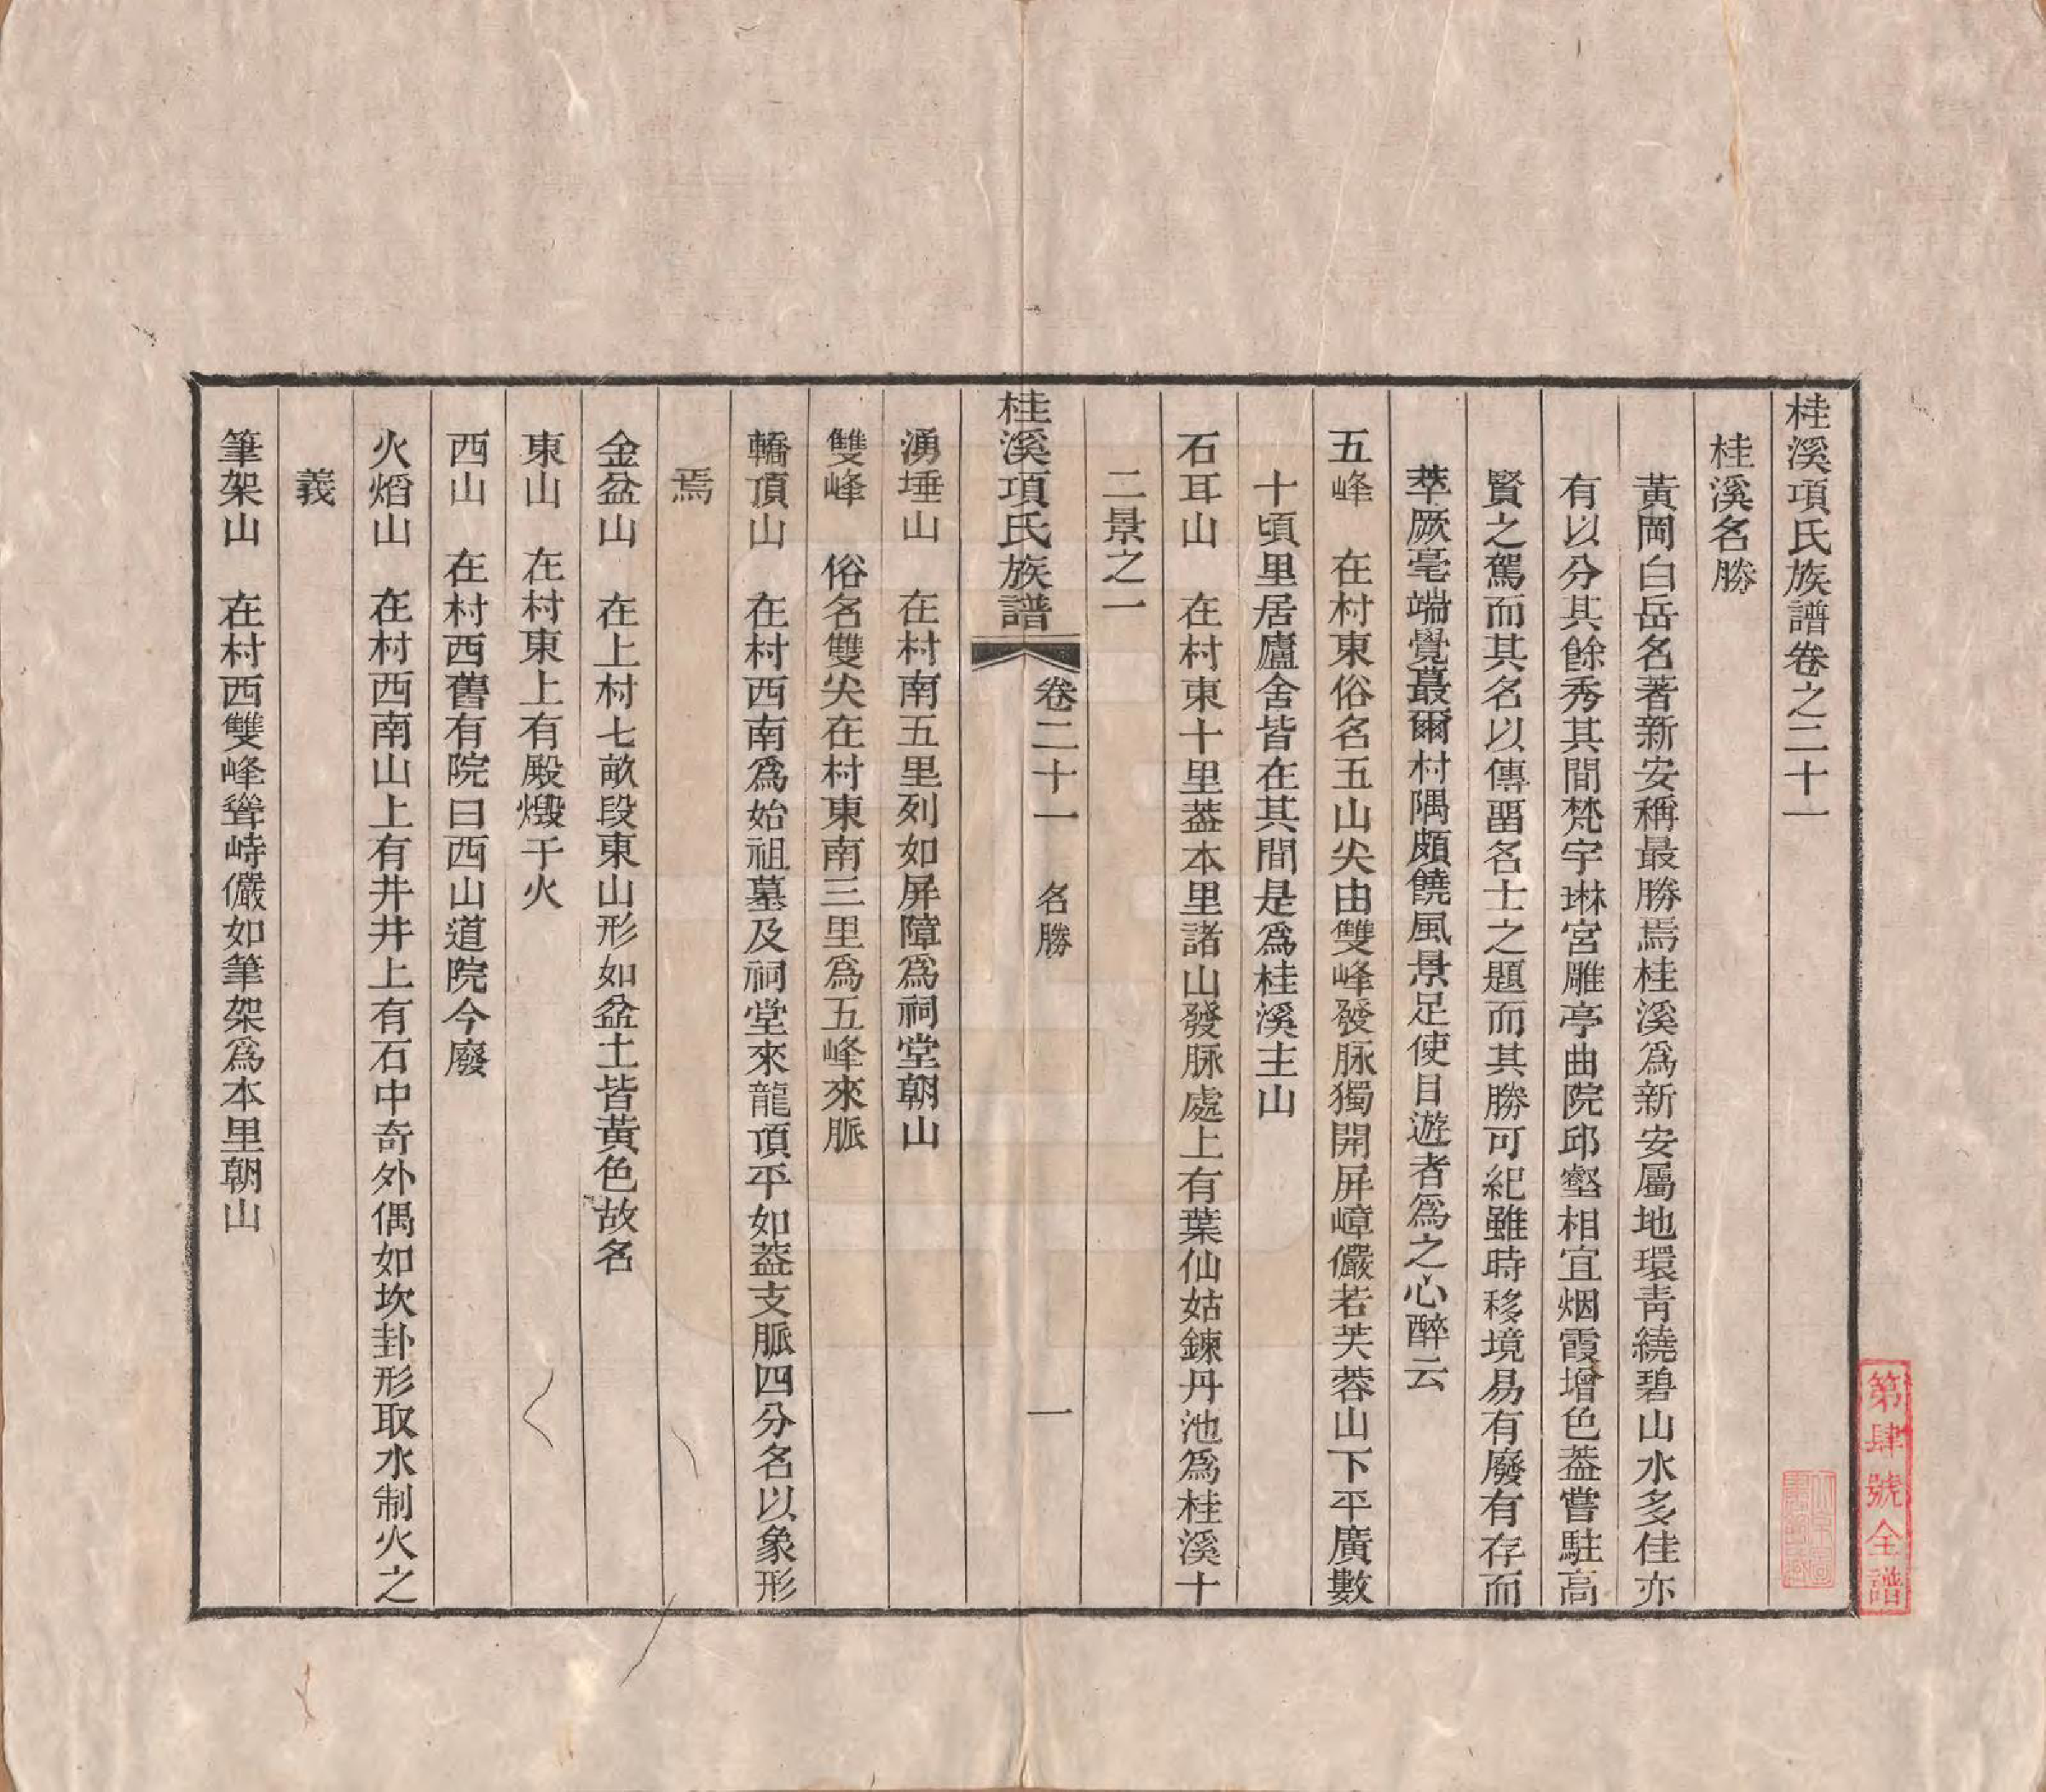 桂溪項氏族譜卷之二十一
桂溪名勝
黃岡白岳名著新安稱最勝焉桂溪爲新安屬地環靑繞碧山水多佳亦
有以分其餘秀其間梵宇琳宮雕亭曲院邱壑相宜烟霞增色葢嘗駐高
賢之駕而其名以傳畱名士之題而其勝可紀雖時移境易有廢有存而
萃厥毫端覺蕞爾村隅頗饒風景足使目遊者爲之心醉云
五峰　在村東俗名五山尖由雙峰發脉獨開屏嶂儼若芙蓉山下平廣數
十頃里居廬舍皆在其間是爲桂溪主山
石耳山　在村東十里葢本里諸山發脉處上有葉仙姑鍊丹池爲桂溪十
二景之一
桂溪項氏族譜　卷二十一　名勝　一
湧埵山　在村南五里列如屏障爲祠堂朝山
雙峰　俗名雙尖在村東南三里爲五峰來脈
轎頂山　在村西南爲始祖墓及祠堂來龍頂平如葢支脈四分名以象形
焉
金盆山　在上村七畝段東山形如盆土皆黃色故名
東山　在村東上有殿燬于火
西山　在村西舊有院曰西山道院今廢
火焰山　在村西南山上有井井上有石中奇外偶如坎卦形取水制火之
義
筆架山　在村西雙峰聳峙儼如筆架爲本里朝山
第肆號全譜